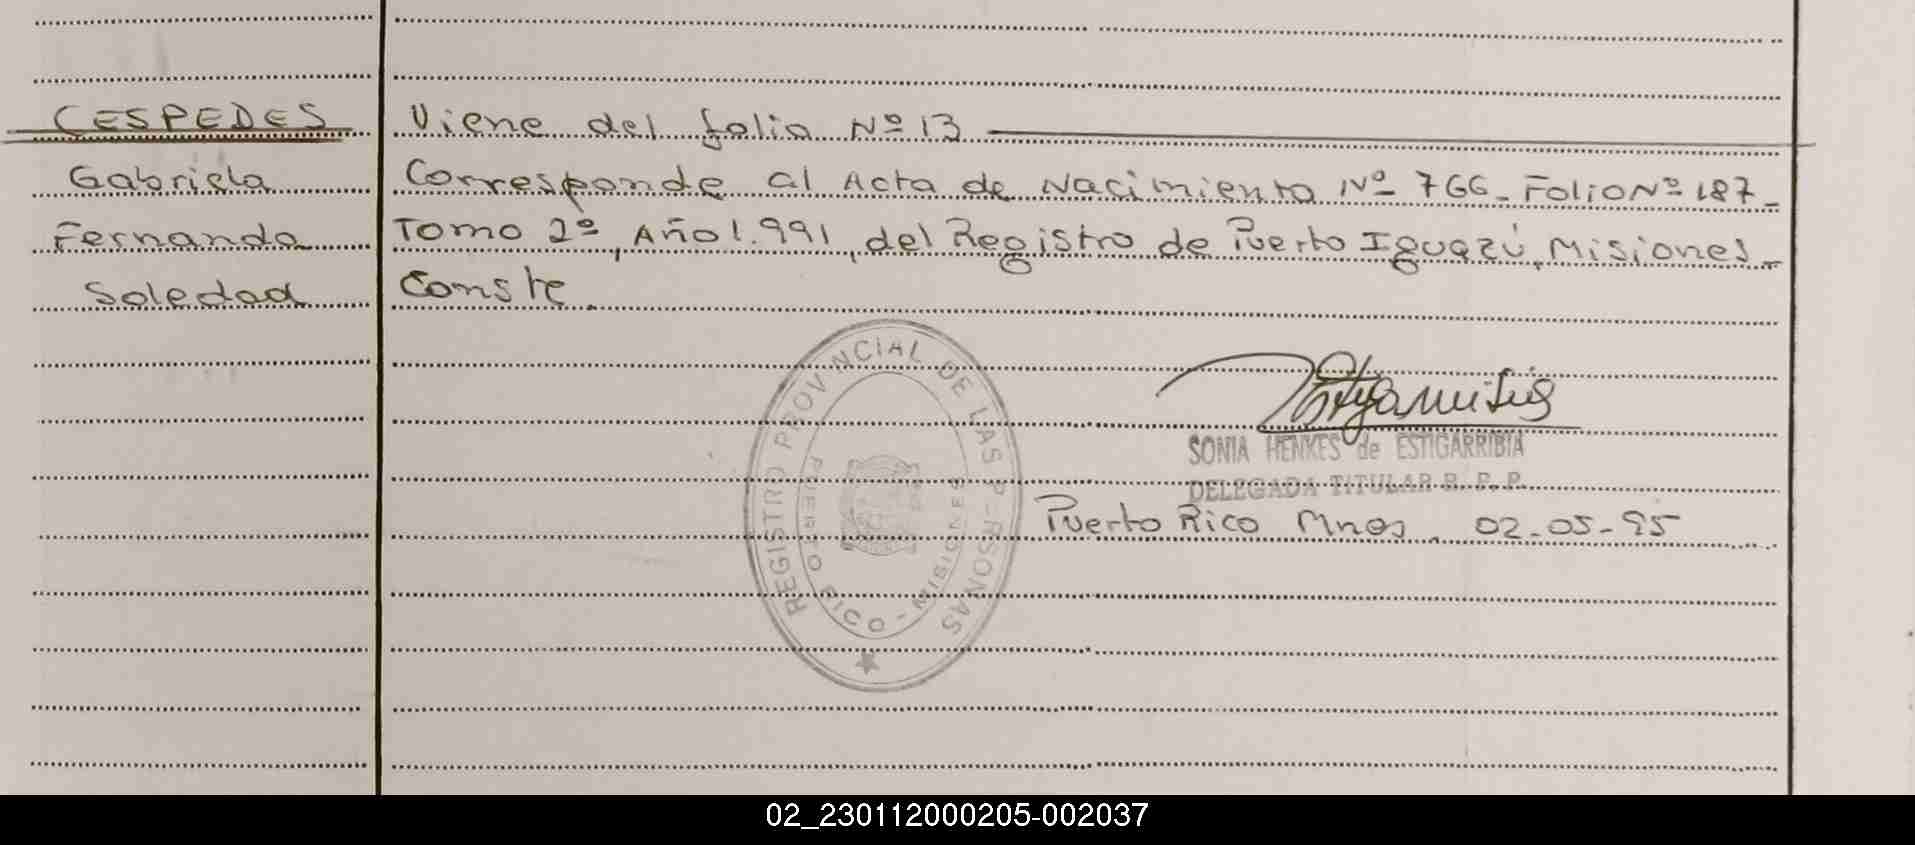 CESPEDES Viene del folio Nº 13
Gabriela Corresponde al Acta de Nacimiento Nº 766_ Folio Nº 187_
Fernanda Tomo 2º, Año 1.991, del Registro de Puerto Iguazú, Misiones_
Soledad Conste.
REGISTRO PROVINCIAL DE LAS P-RSONAS
PUERTO RICO - MISIONES
SONIA HENKES de ESTIGARRIBIA
DELEGADA TITULAR R. P. P.
Puerto Rico Mnes. 02-05-95
02_230112000205-002037